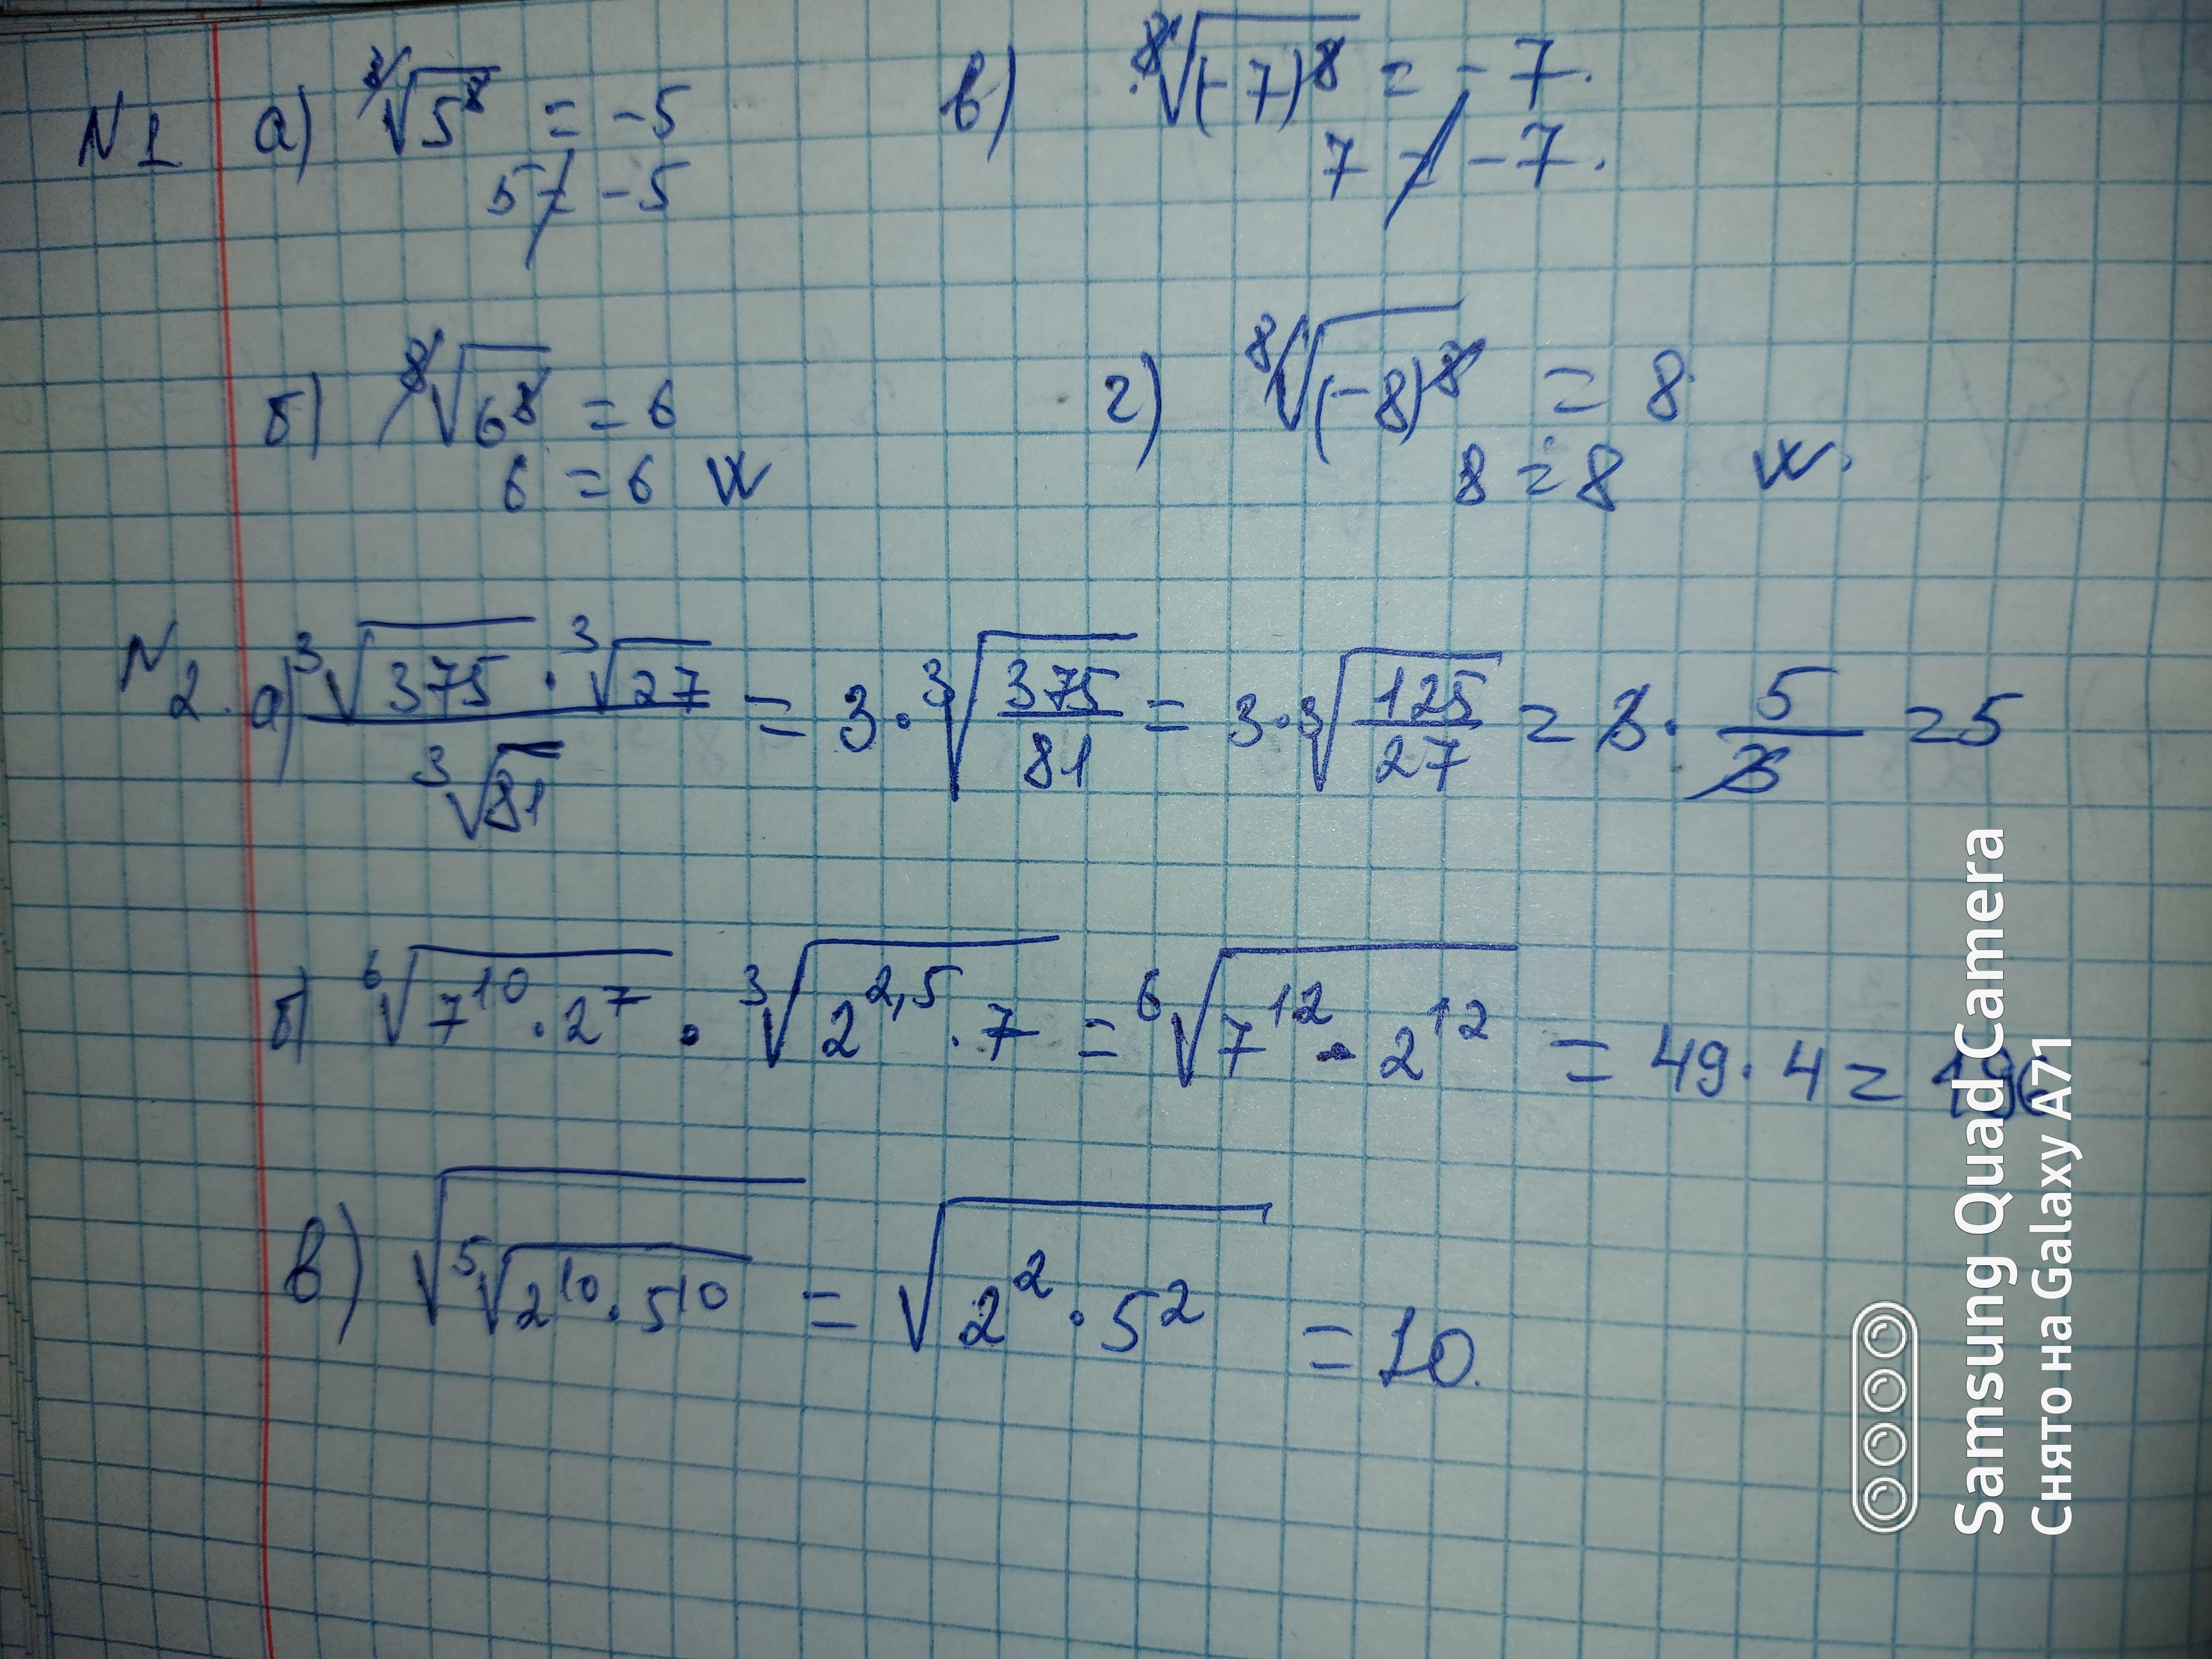 N1 а) ⁸√5⁸ = -5 в) ⁸√(-7)⁸ = -7.
5 ≠ -5 7 ≠ -7.
б) ⁸√6⁸ = 6 г) ⁸√(-8)⁸ = 8
6 = 6 W 8 = 8 W.
N2. а) (³√375 · ³√27) / ³√81 = 3 · ³√(375/81) = 3 · ³√(125/27) = 3 · 5/3 = 5
б) ⁶√(7¹⁰ · 2⁷) · ³√(2^2,5 · 7) = ⁶√(7¹² · 2¹²) = 49 · 4 = 196
в) √(⁵√(2¹⁰ · 5¹⁰)) = √(2² · 5²) = 10.
Samsung Quad Camera
Снято на Galaxy A71